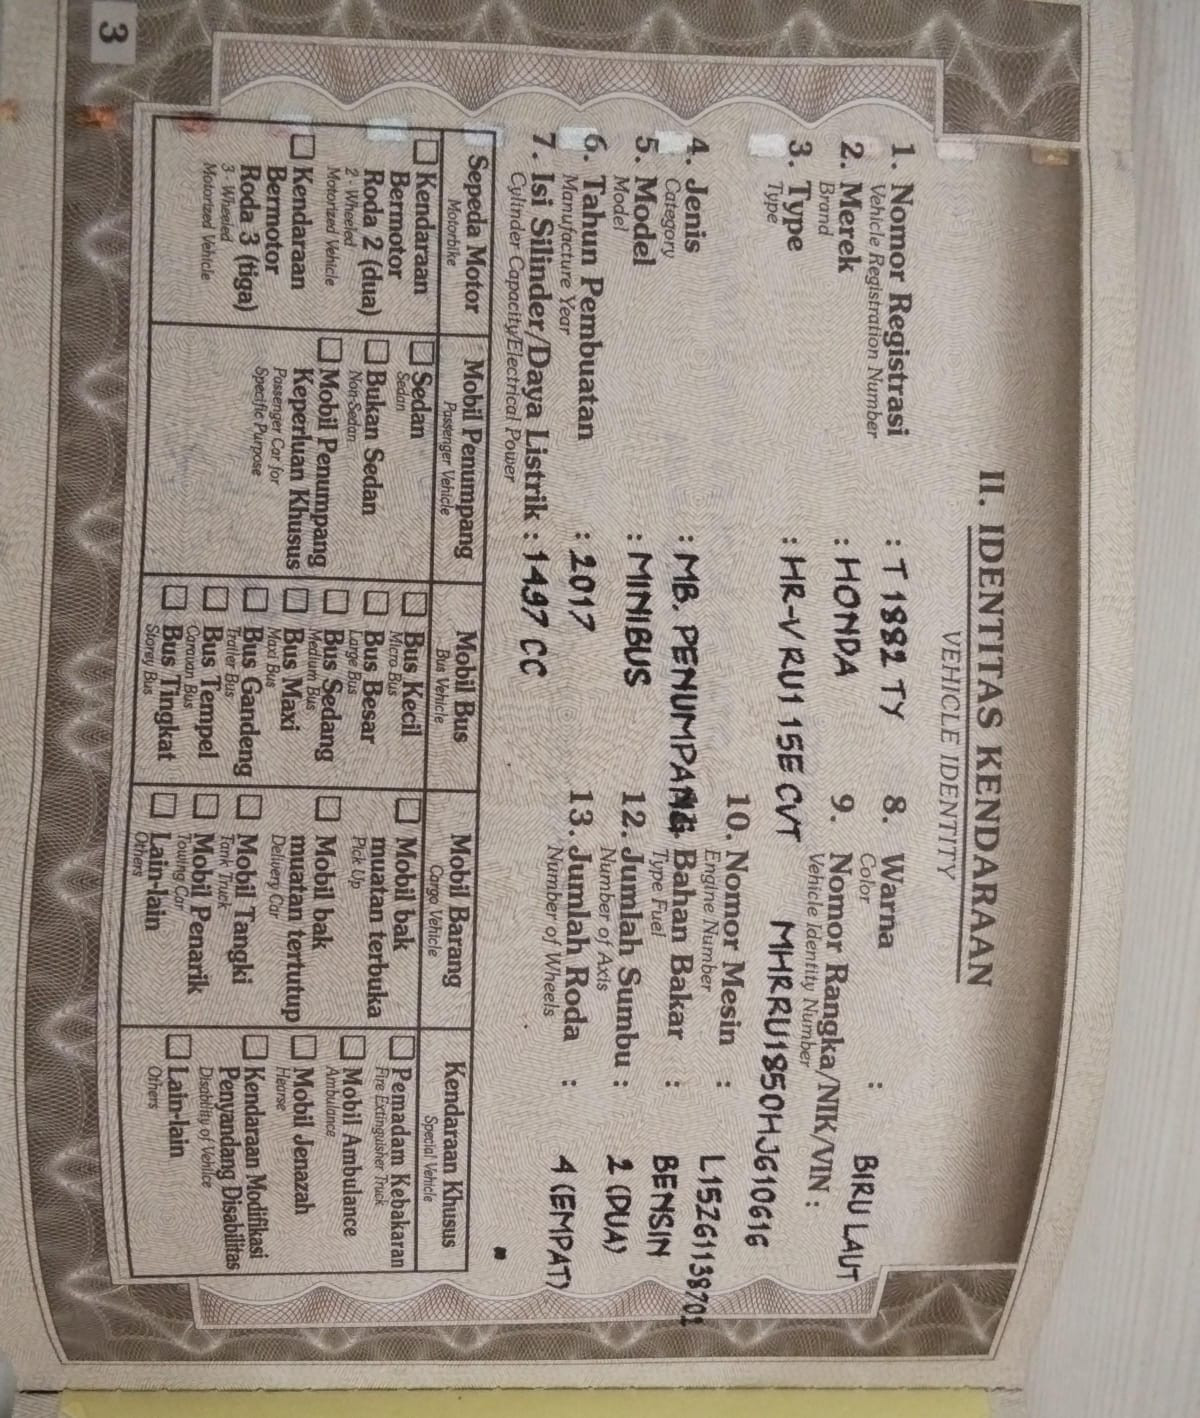 II. IDENTITAS KENDARAAN
VEHICLE IDENTITY
1. Nomor Registrasi : T 1882 TY
Vehicle Registration Number
2. Merek : HONDA
Brand
3. Type : HR-V RU1 15E CVT
Type
4. Jenis : MB. PENUMPANG
Category
5. Model : MINIBUS
Model
6. Tahun Pembuatan : 2017
Manufacture Year
7. Isi Silinder/Daya Listrik : 1497 CC
Cylinder Capacity/Electrical Power
8. Warna : BIRU LAUT
Color
9. Nomor Rangka/NIK/VIN :
Vehicle Identity Number
MHRRU1850HJ610616
10. Nomor Mesin : L15Z61138701
Engine Number
Bahan Bakar : BENSIN
Type Fuel
12. Jumlah Sumbu : 2 (DUA)
Number of Axis
13. Jumlah Roda : 4 (EMPAT)
Number of Wheels
Sepeda Motor
Motorbike
Kendaraan
Bermotor
Roda 2 (dua)
2 - Wheeled
Motorized Vehicle
Kendaraan
Bermotor
Roda 3 (tiga)
3 - Wheeled
Motorized Vehicle
Mobil Penumpang
Passenger Vehicle
Sedan
Sedan
Bukan Sedan
Non-Sedan
Mobil Penumpang
Keperluan Khusus
Passenger Car for
Specific Purpose
Mobil Bus
Bus Vehicle
Bus Kecil
Micro Bus
Bus Besar
Large Bus
Bus Sedang
Medium Bus
Bus Maxi
Maxi Bus
Bus Gandeng
Trailer Bus
Bus Tempel
Caravan Bus
Bus Tingkat
Storey Bus
Mobil Barang
Cargo Vehicle
Mobil bak
muatan terbuka
Pick Up
Mobil bak
muatan tertutup
Delivery Car
Mobil Tangki
Tank Truck
Mobil Penarik
Towing Car
Lain-lain
Others
Kendaraan Khusus
Special Vehicle
Pemadam Kebakaran
Fire Extinguisher Truck
Mobil Ambulance
Ambulance
Mobil Jenazah
Hearse
Kendaraan Modifikasi
Penyandang Disabilitas
Disability of Vehilce
Lain-lain
Others
3